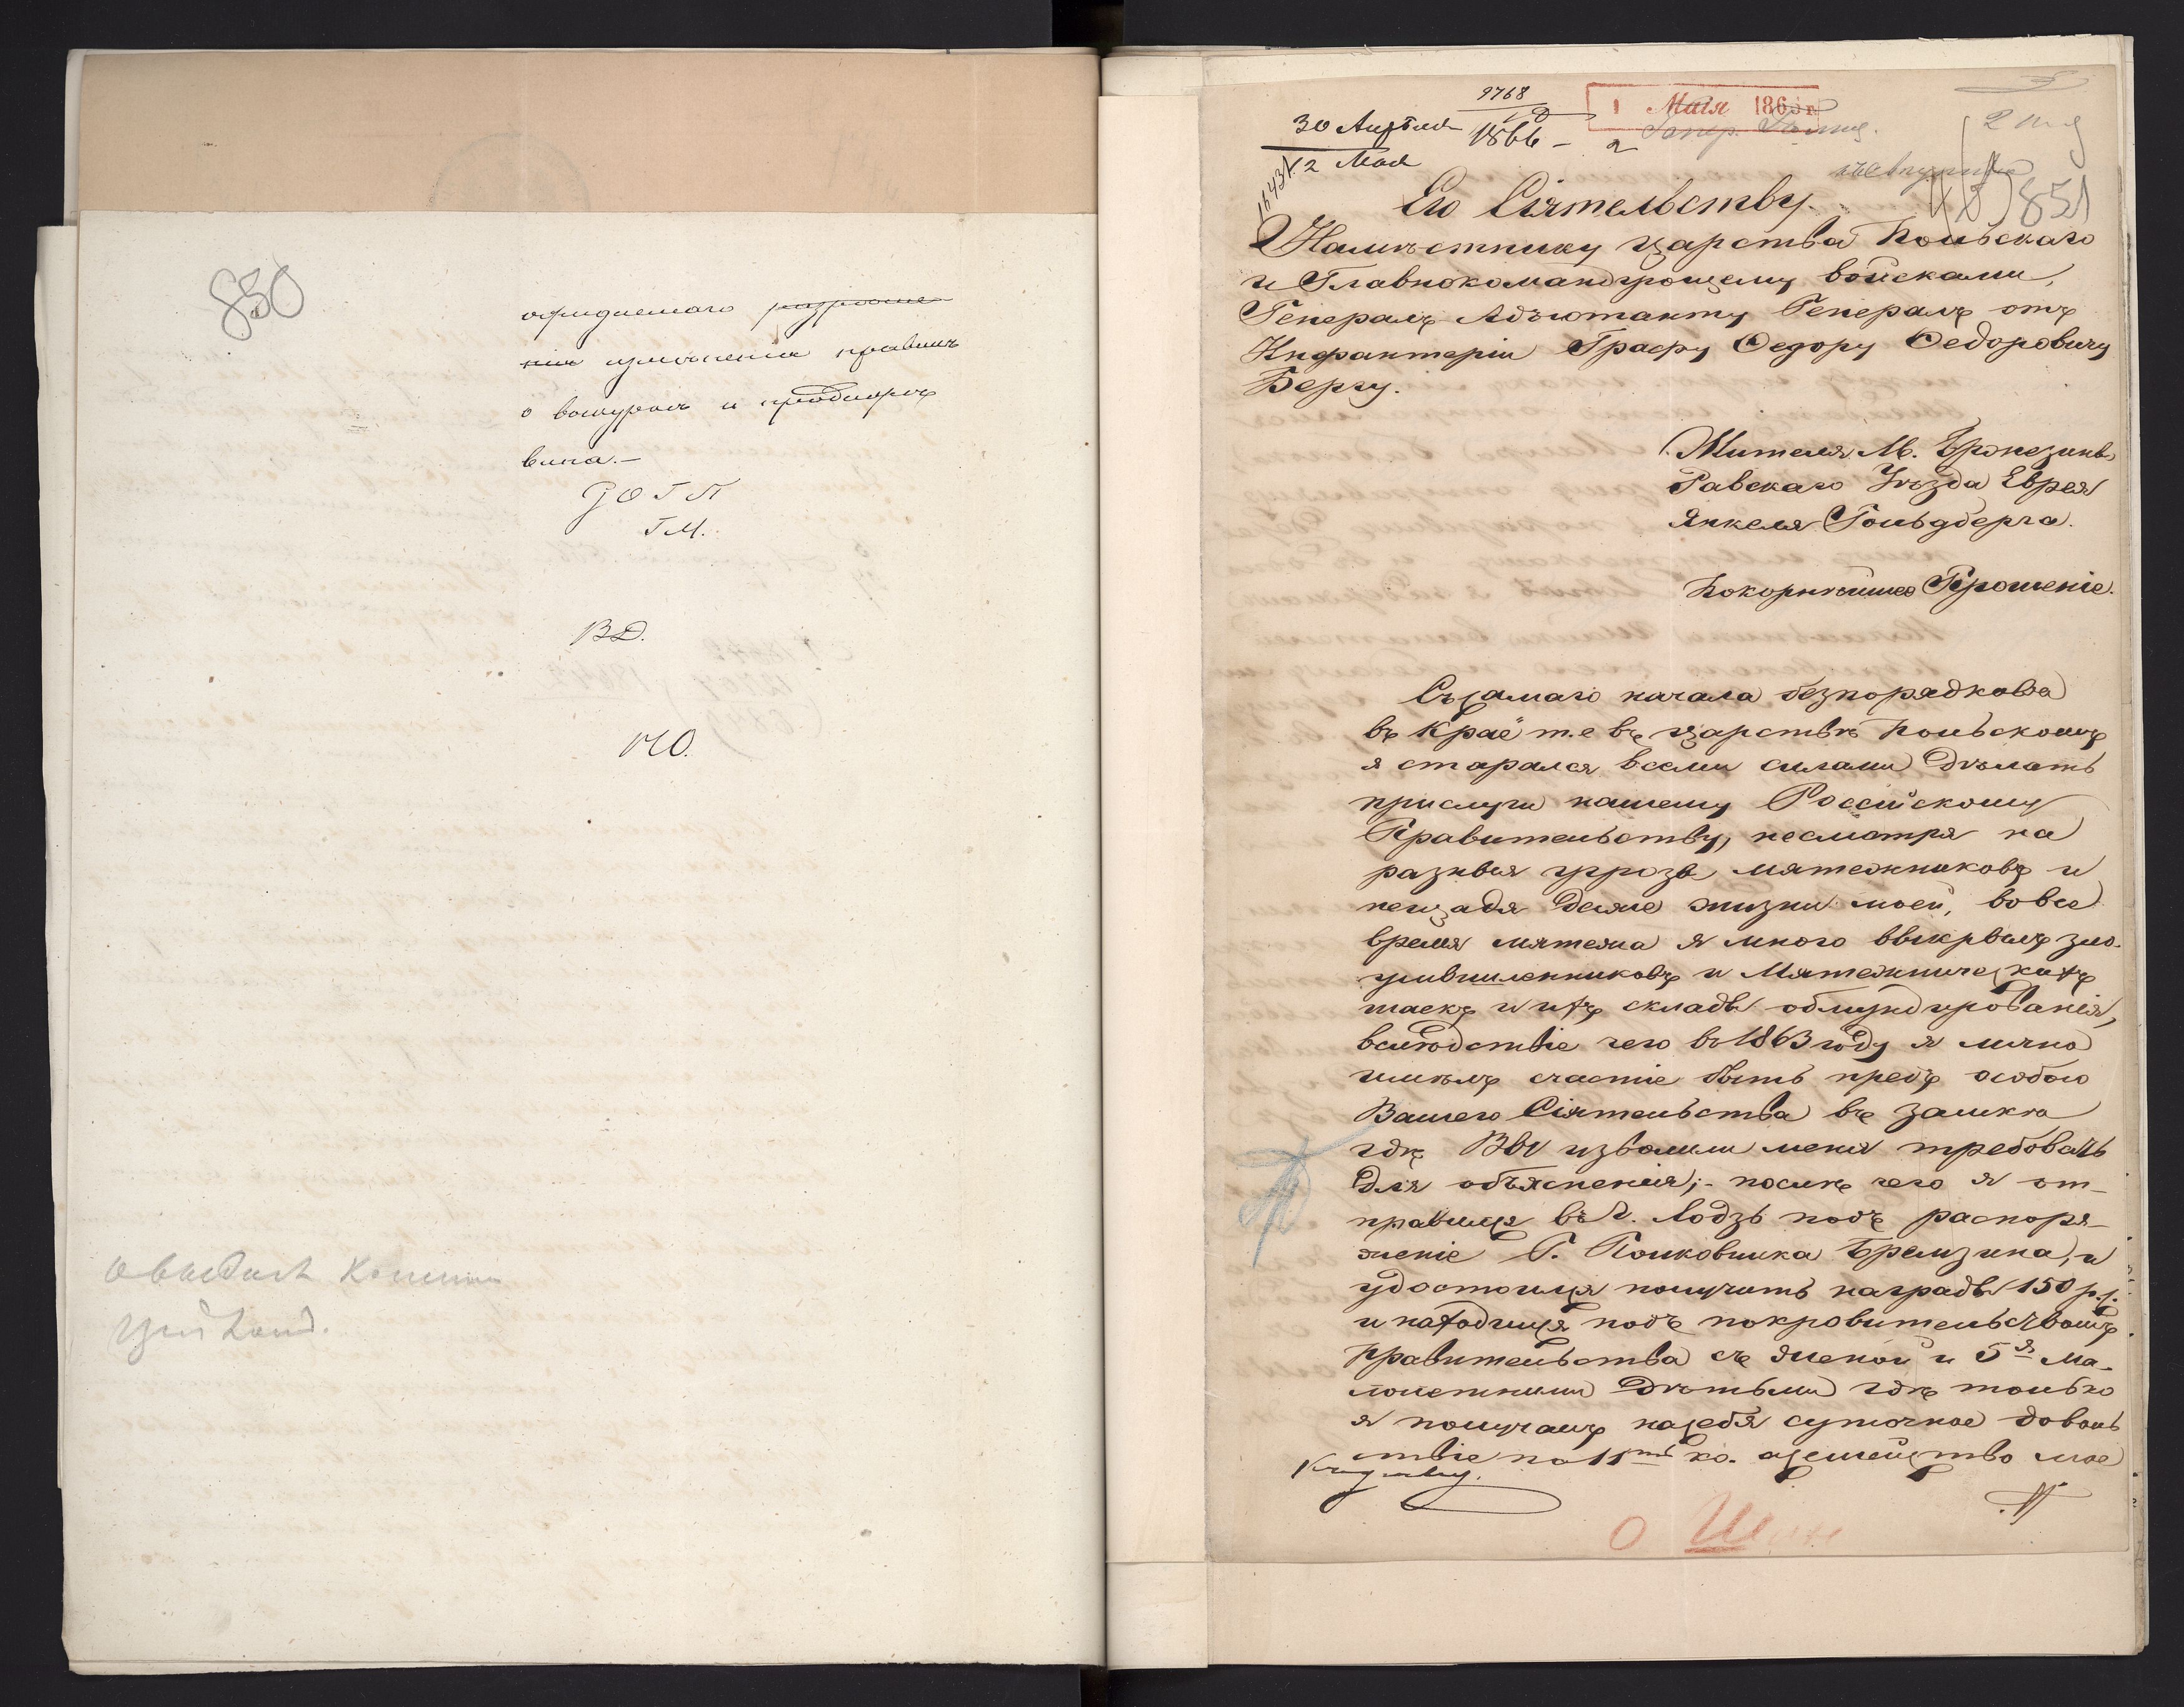 850
ожидаемаго
измѣненія правилъ
о винокуреніи и
вина.-
ВД.
9768
1 Мая 186
30 Апрѣля 1866 -
12 Мая
851
Его Сіятельству
Намѣстнику царства Польскаго
и Главнокомандующему войсками,
Генералъ Адъютанту Генералъ отъ
Инфантеріи Графу Федору Федоровичу
Бергу.
Жителя М. Брзезинъ
Равскаго Уѣзда Еврея
Янкеля Гольдберга.
Покорнѣйшее Прошеніе.
Съ самаго начала безпорядковъ
въ Краѣ т.е въ царствѣ Польскомъ
я старался всеми силами дѣлать
прислуги нашему Россійскому
Правительству, несмотря на
разныя угрозы мятежниковъ и
нещадя даже жизни моей, вовсе
время мятежа я много выкрылъ зло-
умышленниковъ и Мятежническихъ
шаекъ и ихъ склады обмундированія,
вслѣдствіе чего въ 1863 году я лично
имѣлъ счастіе быть предъ особою
Вашего Сіятельства въ замкѣ
гдѣ Вы изволили меня требовать
для объясненія;- послѣ чего я от-
правился въ г. Лодзь подъ распоря-
женіе Г. Полковника Бремзина, и
удостоился получить награды 150 р.с.
и находился подъ покровительствомъ
правительства съ женой и 5я ма-
лолетними дѣтьми гдѣ только
я получалъ на себя суточное доволь
ствіе по 15ть ко. а семейство мое